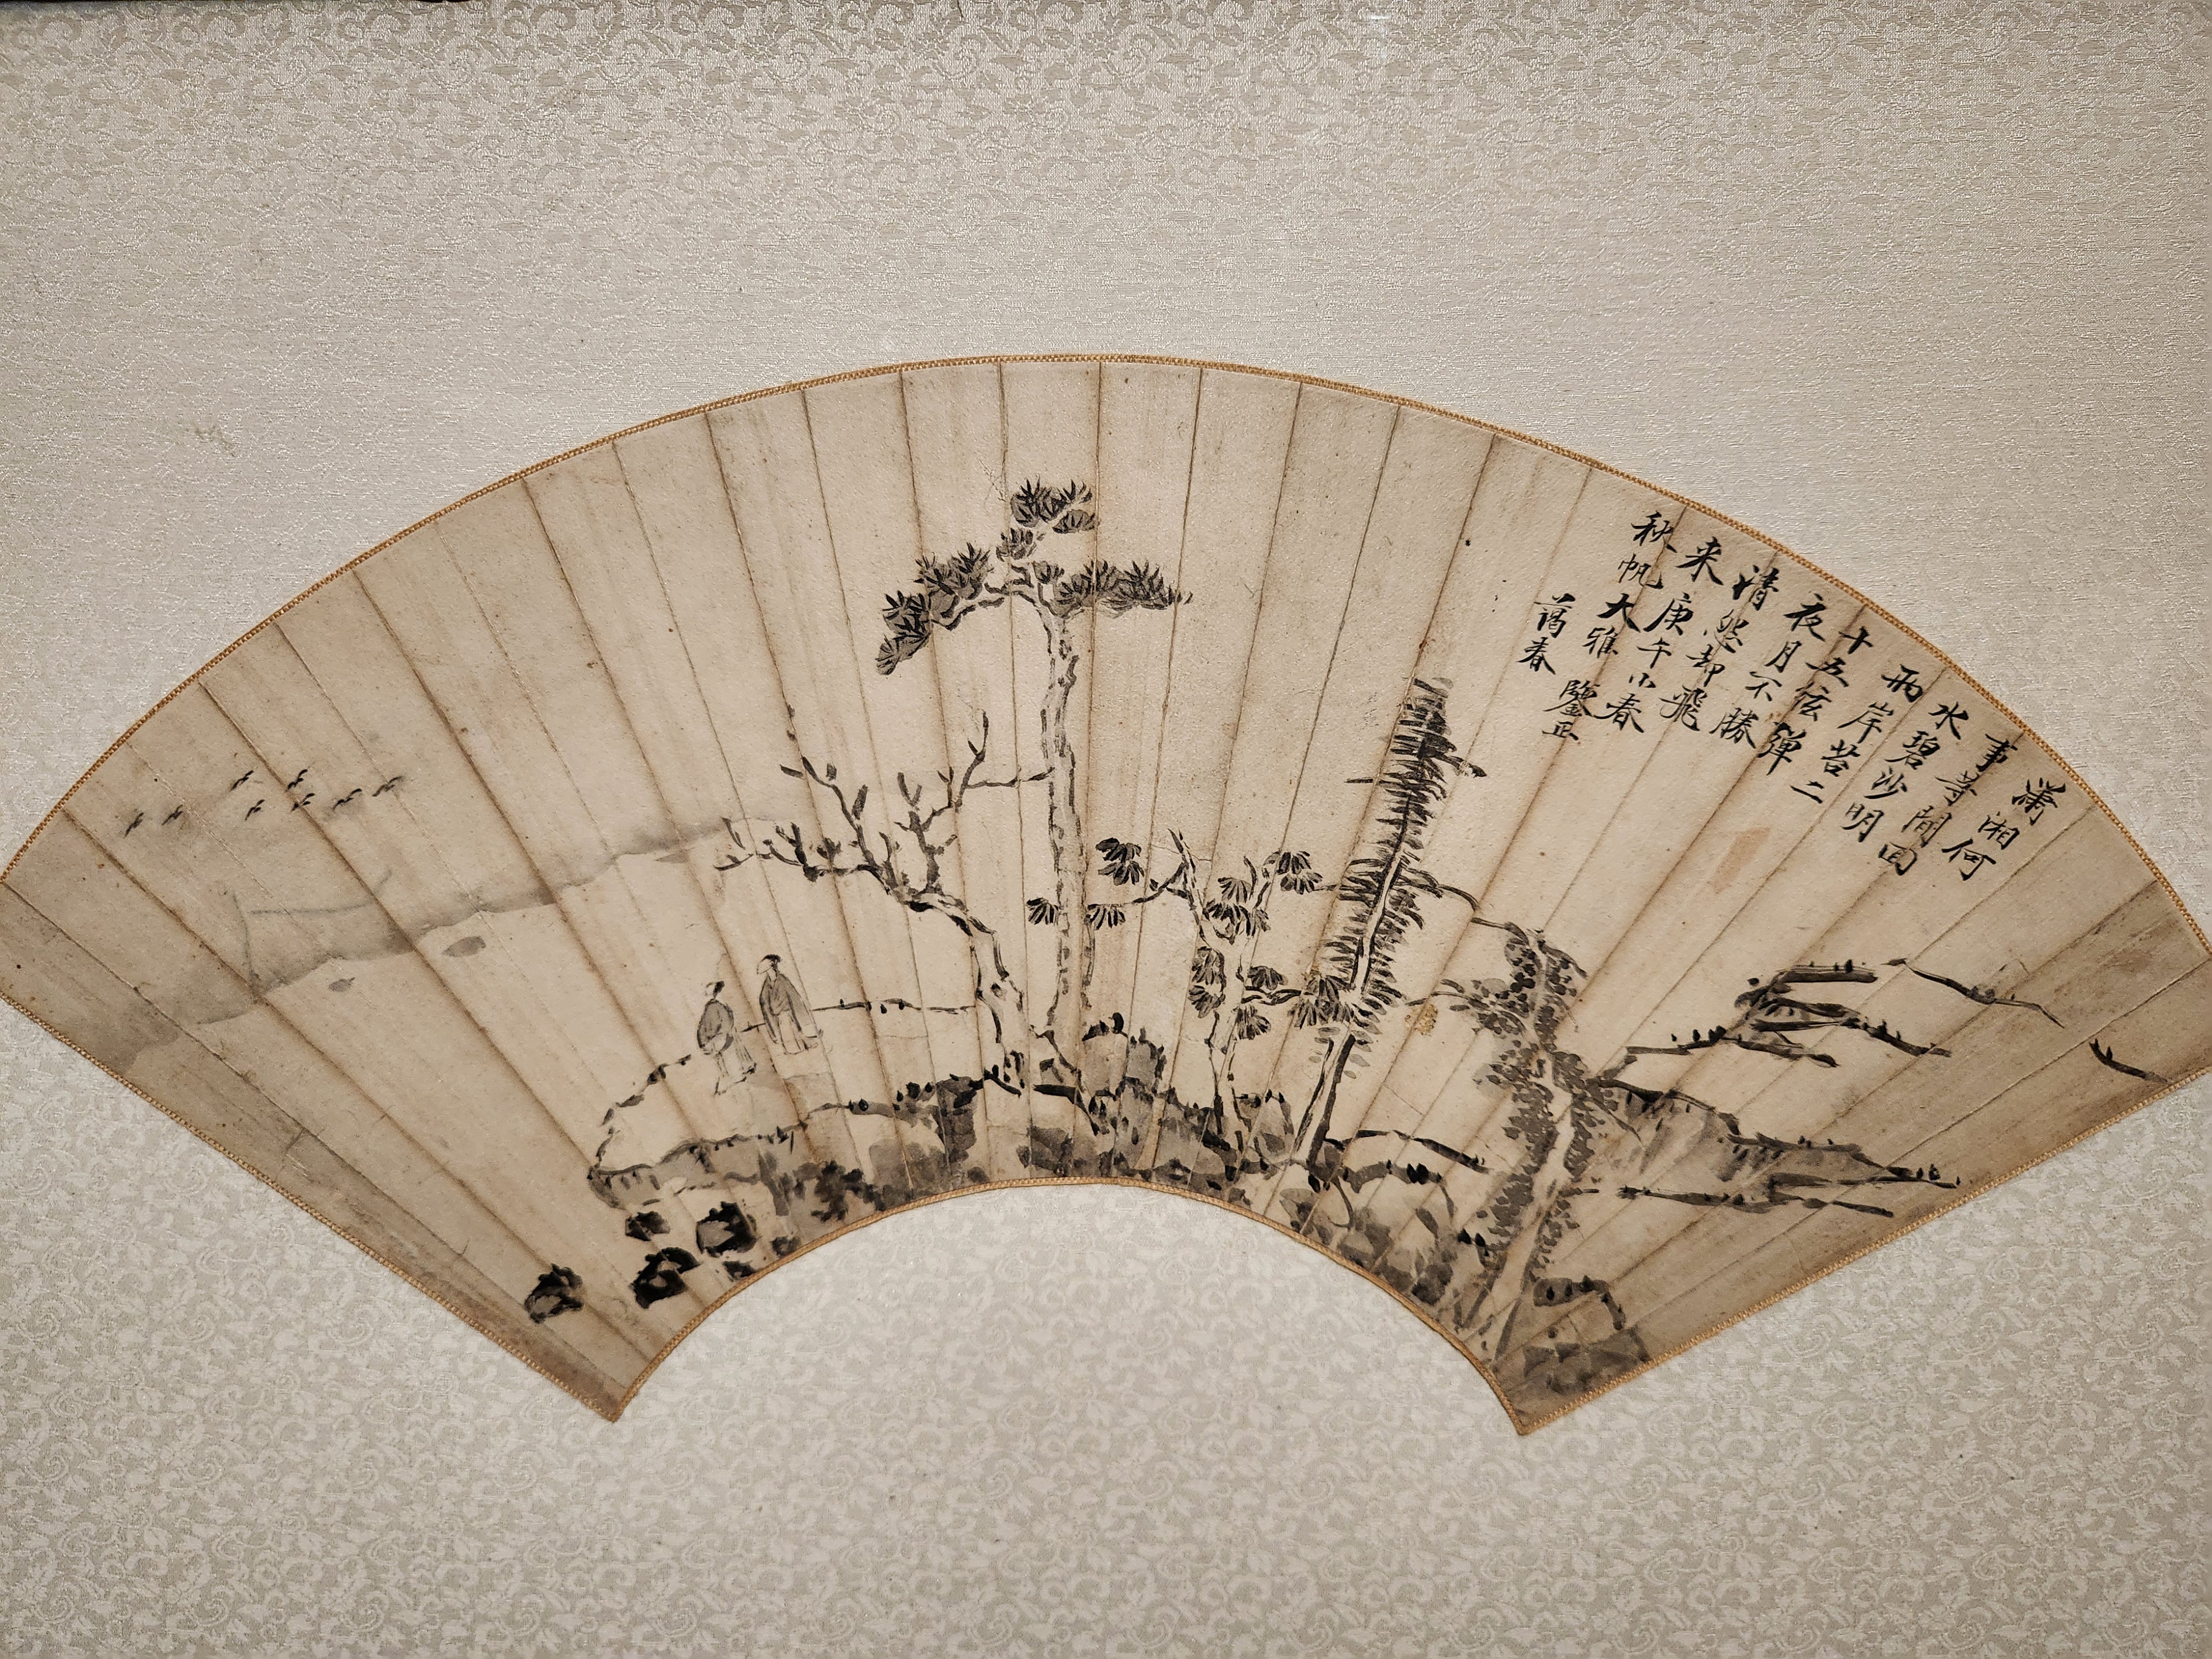 瀟湘何
事等閒回
水碧沙明
兩岸苔二
十五弦弹
夜月不勝
清怨却飛
来 庚午小春
秋帆大雅 鑒正
藹春